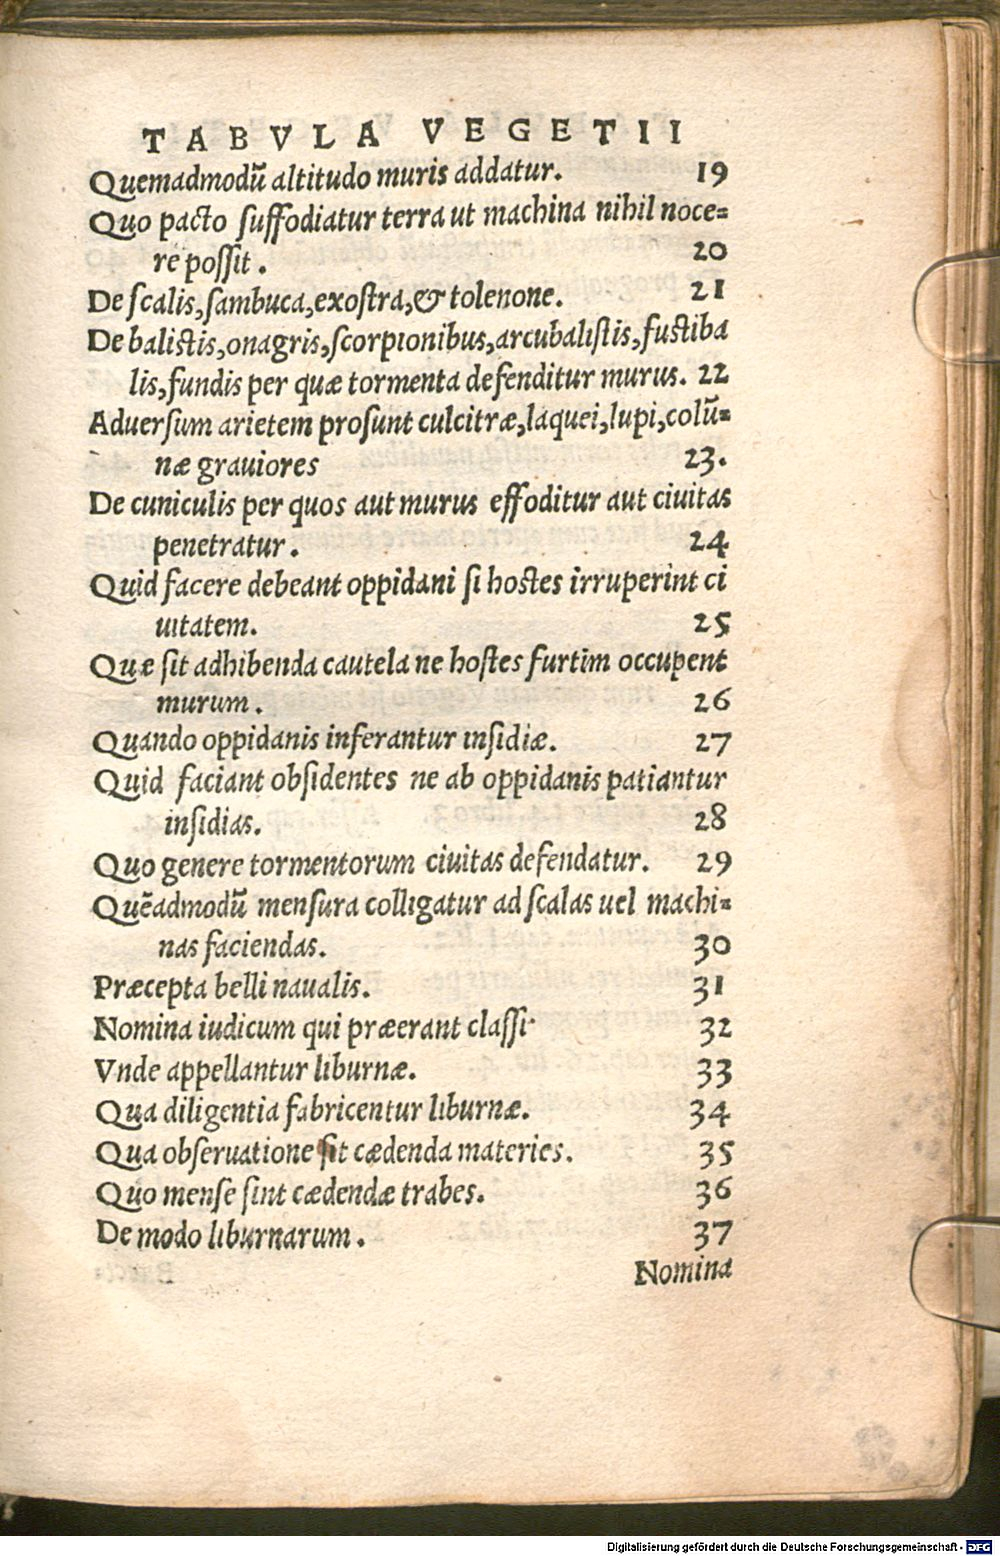 TABVLA VEGETII
Quemadmodū altitudo muris addatur. 19
Quo pacto suffodiatur terra ut machina nihil noce=
re possit. 20
De scalis, sambuca, exostra, & tolenone. 21
De balistis, onagris, scorpionibus, arcubalistis, fustiba
lis, fundis per quæ tormenta defenditur murus. 22
Aduersum arietem prosunt culcitræ, laquei, lupi, colū=
næ grauiores 23.
De cuniculis per quos aut murus effoditur aut ciuitas
penetratur. 24
Quid facere debeant oppidani si hostes irruperint ci
uitatem. 25
Quæ sit adhibenda cautela ne hostes furtim occupent
murum. 26
Quando oppidanis inferantur insidiæ. 27
Quid faciant obsidentes ne ab oppidanis patiantur
insidias. 28
Quo genere tormentorum ciuitas defendatur. 29
Quēadmodū mensura colligatur ad scalas uel machi=
nas faciendas. 30
Præcepta belli naualis. 31
Nomina iudicum qui præerant classi· 32
Vnde appellantur liburnæ. 33
Qua diligentia fabricentur liburnæ. 34
Qua obseruatione sit cædenda materies. 35
Quo mense sint cædendæ trabes. 36
De modo liburnarum. 37
Nomina
Digitalisierung gefördert durch die Deutsche Forschungsgemeinschaft - DFG